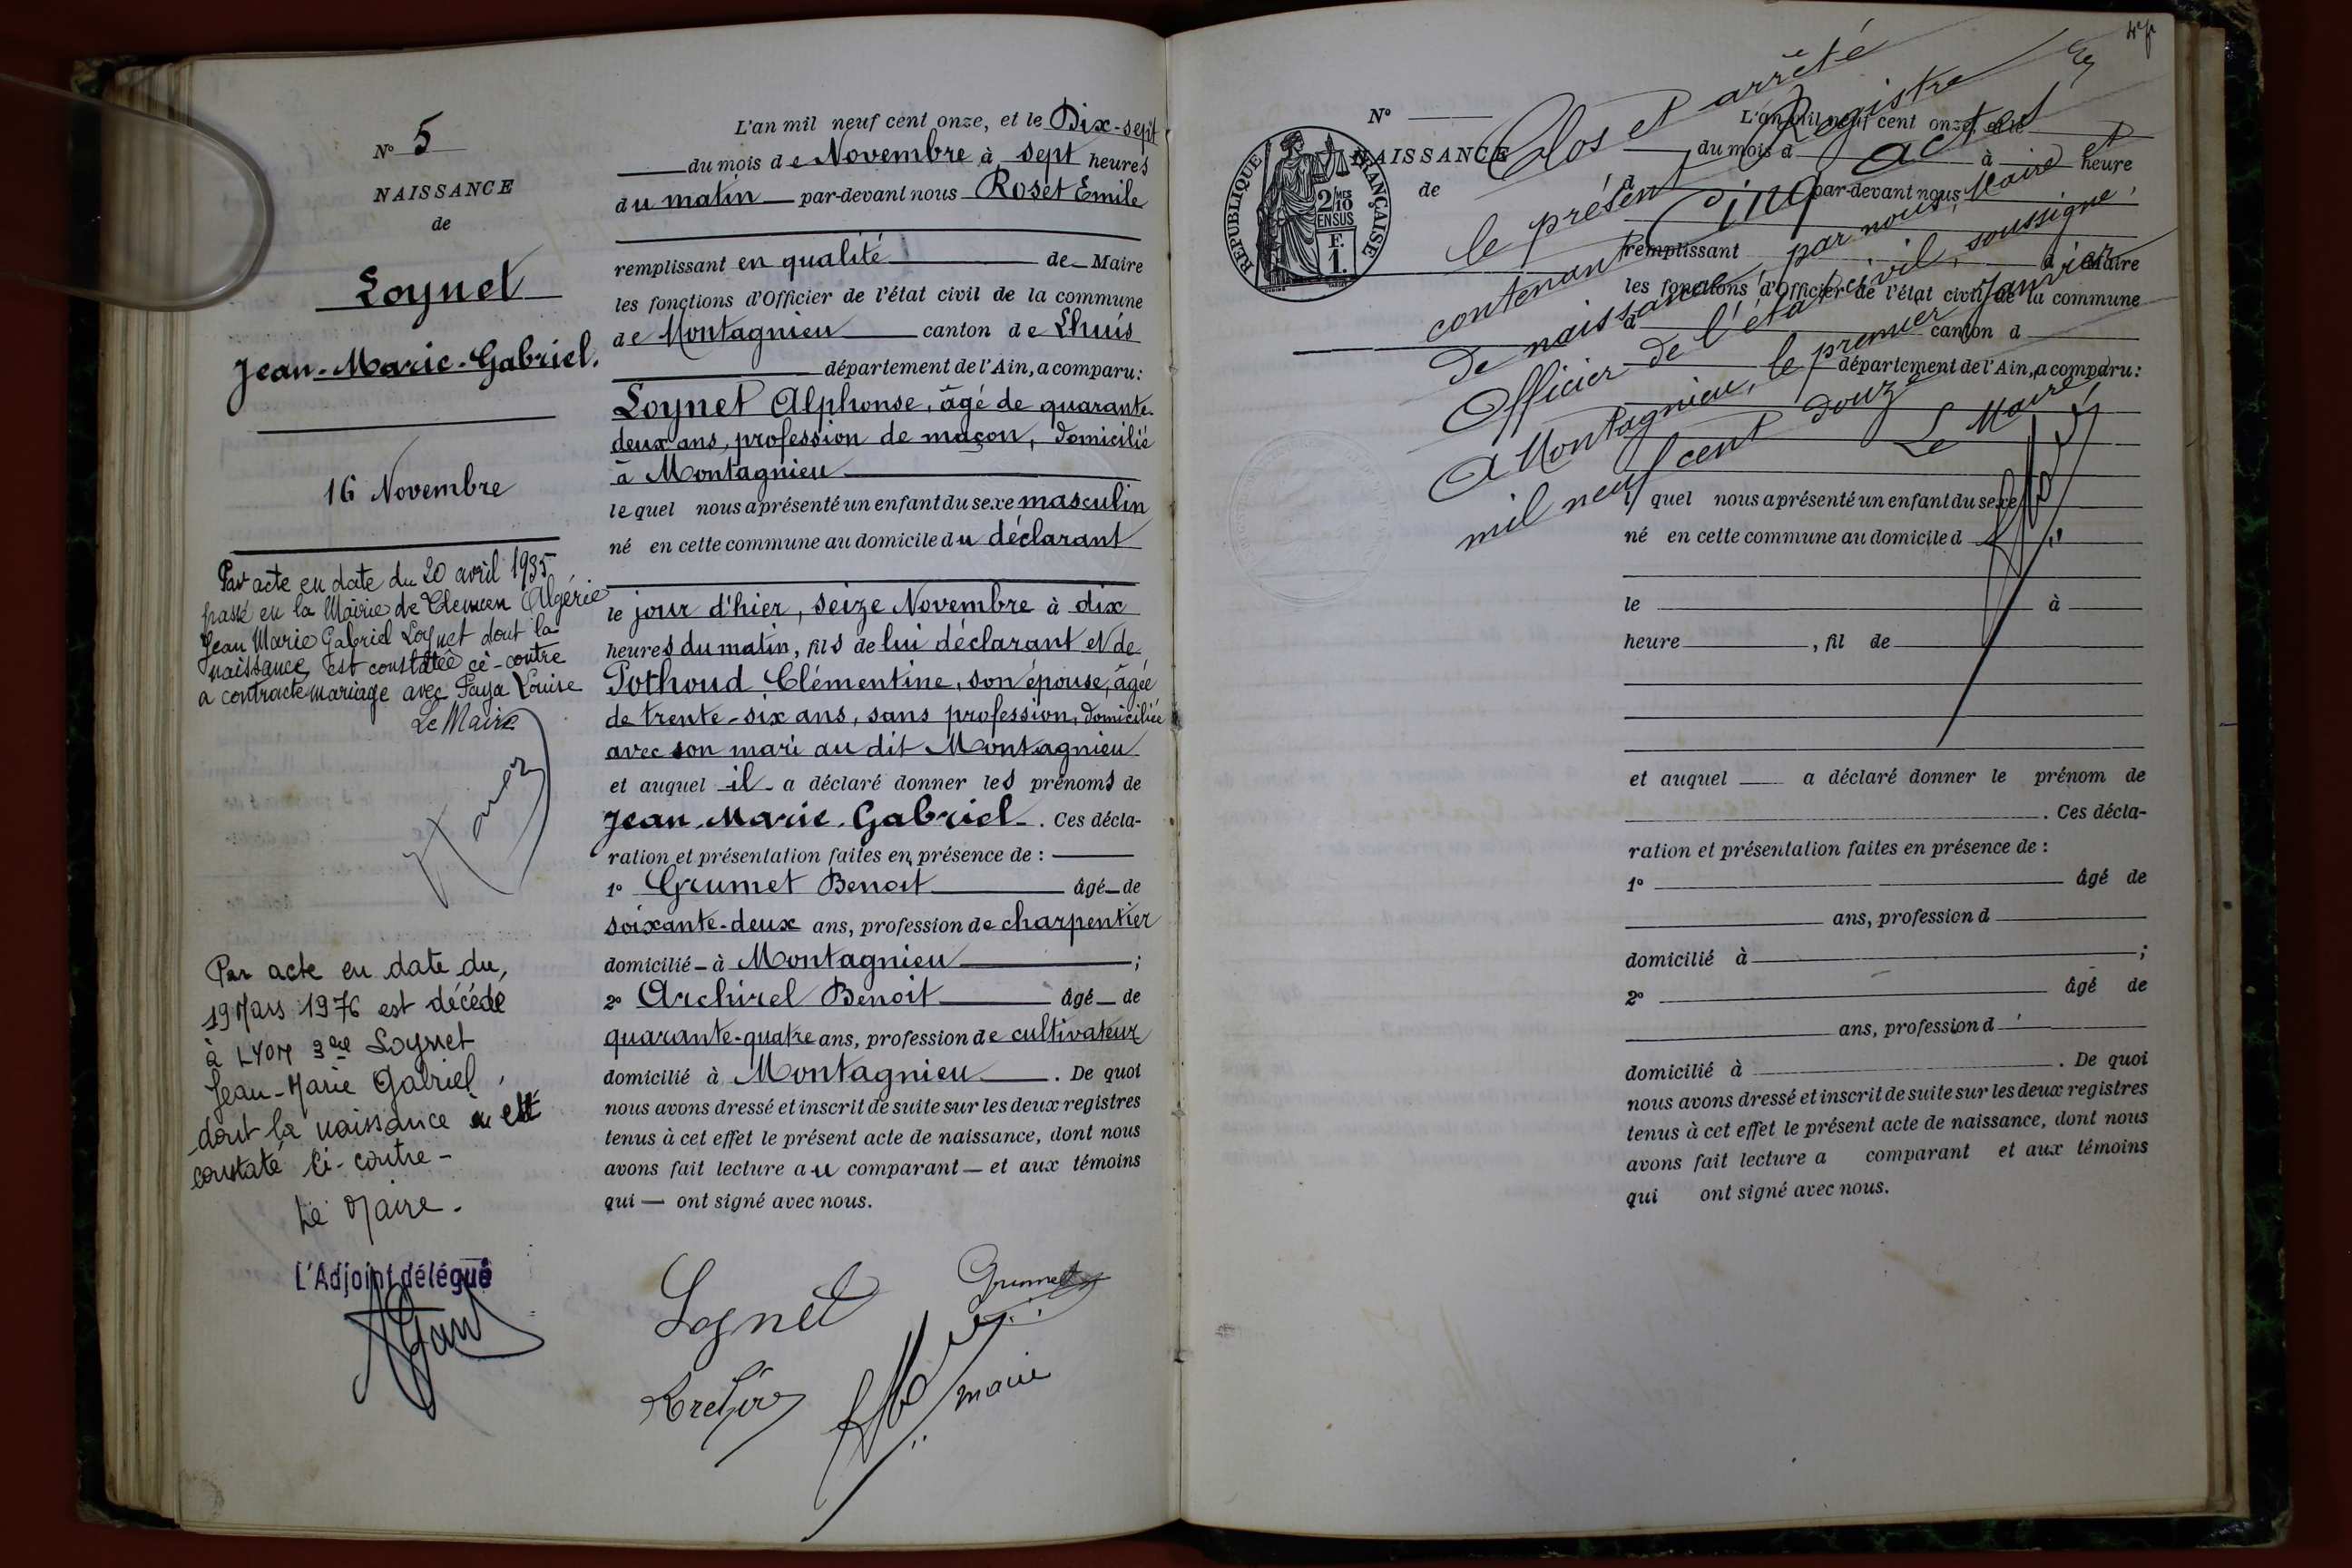 N° 5
NAISSANCE
de
Loynet
Jean-Marie-Gabriel.
16 Novembre
Par acte en date du 20 avril 1935
passé en la Mairie de Tlemcen Algérie
Jean Marie Gabriel Loynet dont la
naissance est constatée ci-contre
a contracté mariage avec Paya Louise
Le Maire
Par acte en date du,
19 Mars 1976 est décédé
à LYON 3ème Loynet
Jean-Marie Gabriel,
dont la naissance est
constaté ci-contre-
Le Maire.
L'Adjoint délégué
L'an mil neuf cent onze, et le Dix-sept
du mois de Novembre à sept heures
du matin par-devant nous Roset Emile
remplissant en qualité de Maire
les fonctions d'Officier de l'état civil de la commune
de Montagnieu canton de Lhuis
département de l'Ain, a comparu :
Loynet Alphonse, âgé de quarante-
deux ans, profession de maçon, domicilié
à Montagnieu
lequel nous a présenté un enfant du sexe masculin
né en cette commune au domicile du déclarant
le jour d'hier, seize Novembre à dix
heures du matin, fils de lui déclarant et de
Pothoud Clémentine, son épouse, âgée
de trente-six ans, sans profession, domiciliée
avec son mari au dit Montagnieu
et auquel il a déclaré donner les prénoms de
Jean-Marie-Gabriel. Ces décla-
ration et présentation faites en présence de :
1° Grumet Benoit âgé de
soixante-deux ans, profession de charpentier
domicilié à Montagnieu ;
2° Archirel Benoit âgé de
quarante-quatre ans, profession de cultivateur
domicilié à Montagnieu. De quoi
nous avons dressé et inscrit de suite sur les deux registres
tenus à cet effet le présent acte de naissance, dont nous
avons fait lecture au comparant et aux témoins
qui ont signé avec nous.
Loynet
Grumet
maire
N°
NAISSANCE
de
RÉPUBLIQUE FRANÇAISE
2/10 MES
EN SUS
F.
1.
Clos et arrêté
le présent Registre
contenant Cinq actes
de naissance, par nous, Maire et
Officier de l'état civil, soussigné,
A Montagnieu, le premier Janvier
mil neuf cent douze
Le Maire,
L'an mil neuf cent onze, et le
du mois d à heure
d par-devant nous
remplissant d Maire
les fonctions d'Officier de l'état civil de la commune
d canton d
département de l'Ain, a comparu :
l quel nous a présenté un enfant du sexe
né en cette commune au domicile d
le à
heure , fil de
et auquel a déclaré donner le prénom de
. Ces décla-
ration et présentation faites en présence de :
1° âgé de
ans, profession d
domicilié à ;
2° âgé de
ans, profession d
domicilié à . De quoi
nous avons dressé et inscrit de suite sur les deux registres
tenus à cet effet le présent acte de naissance, dont nous
avons fait lecture a comparant et aux témoins
qui ont signé avec nous.